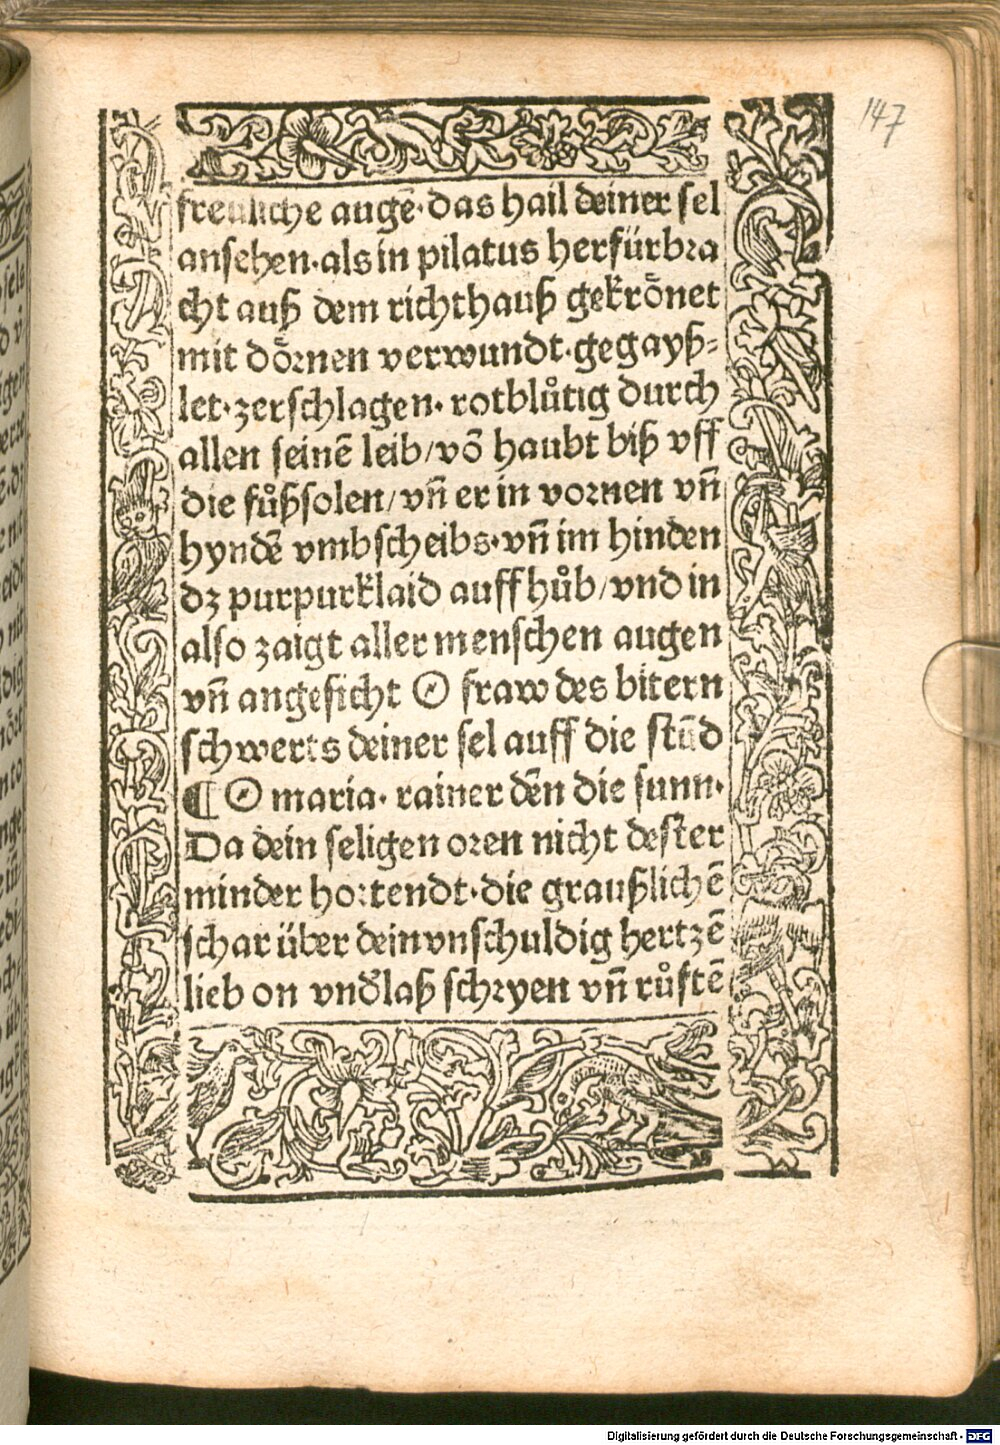 147
freuliche augē·das hail deiner sel
ansehen·als in pilatus herfürbra
cht auß dem richthauß gekrönet
mit dörnen verwundt·gegayß-
let·zerschlagen·rotblůtig durch
allen seinē leib/vō haubt biß vff
die fůßsolen/vñ er in vornen vñ
hyndē vmbscheibs·vñ im hinden
dz purpurklaid auff hůb/vnd in
also zaigt aller menschen augen
vñ angesicht O fraw des bitern
schwerts deiner sel auff die stūd
¶ O maria·rainer dēn die sunn·
Da dein seligen oren nicht dester
minder hortendt·die graußlichē
schar über dein vnschuldig hertzē
lieb on vnd̓laß schryen vñ růftē
Digitalisierung gefördert durch die Deutsche Forschungsgemeinschaft - DFG